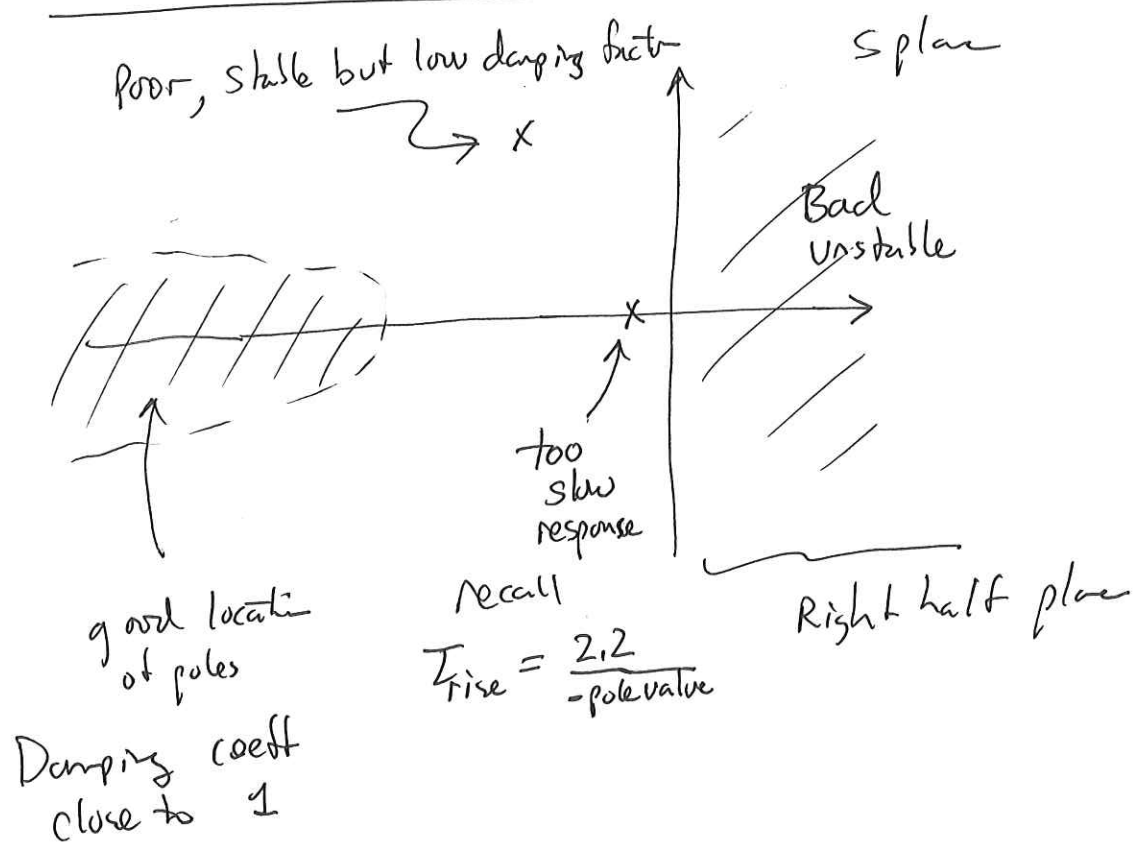 Poor, stable but low damping factr
S plane
x
Bad
unstable
x
too
slow
response
good location
of poles
recall
Trise = 2.2 / -pole value
Right half plane
Damping coeff
close to 1